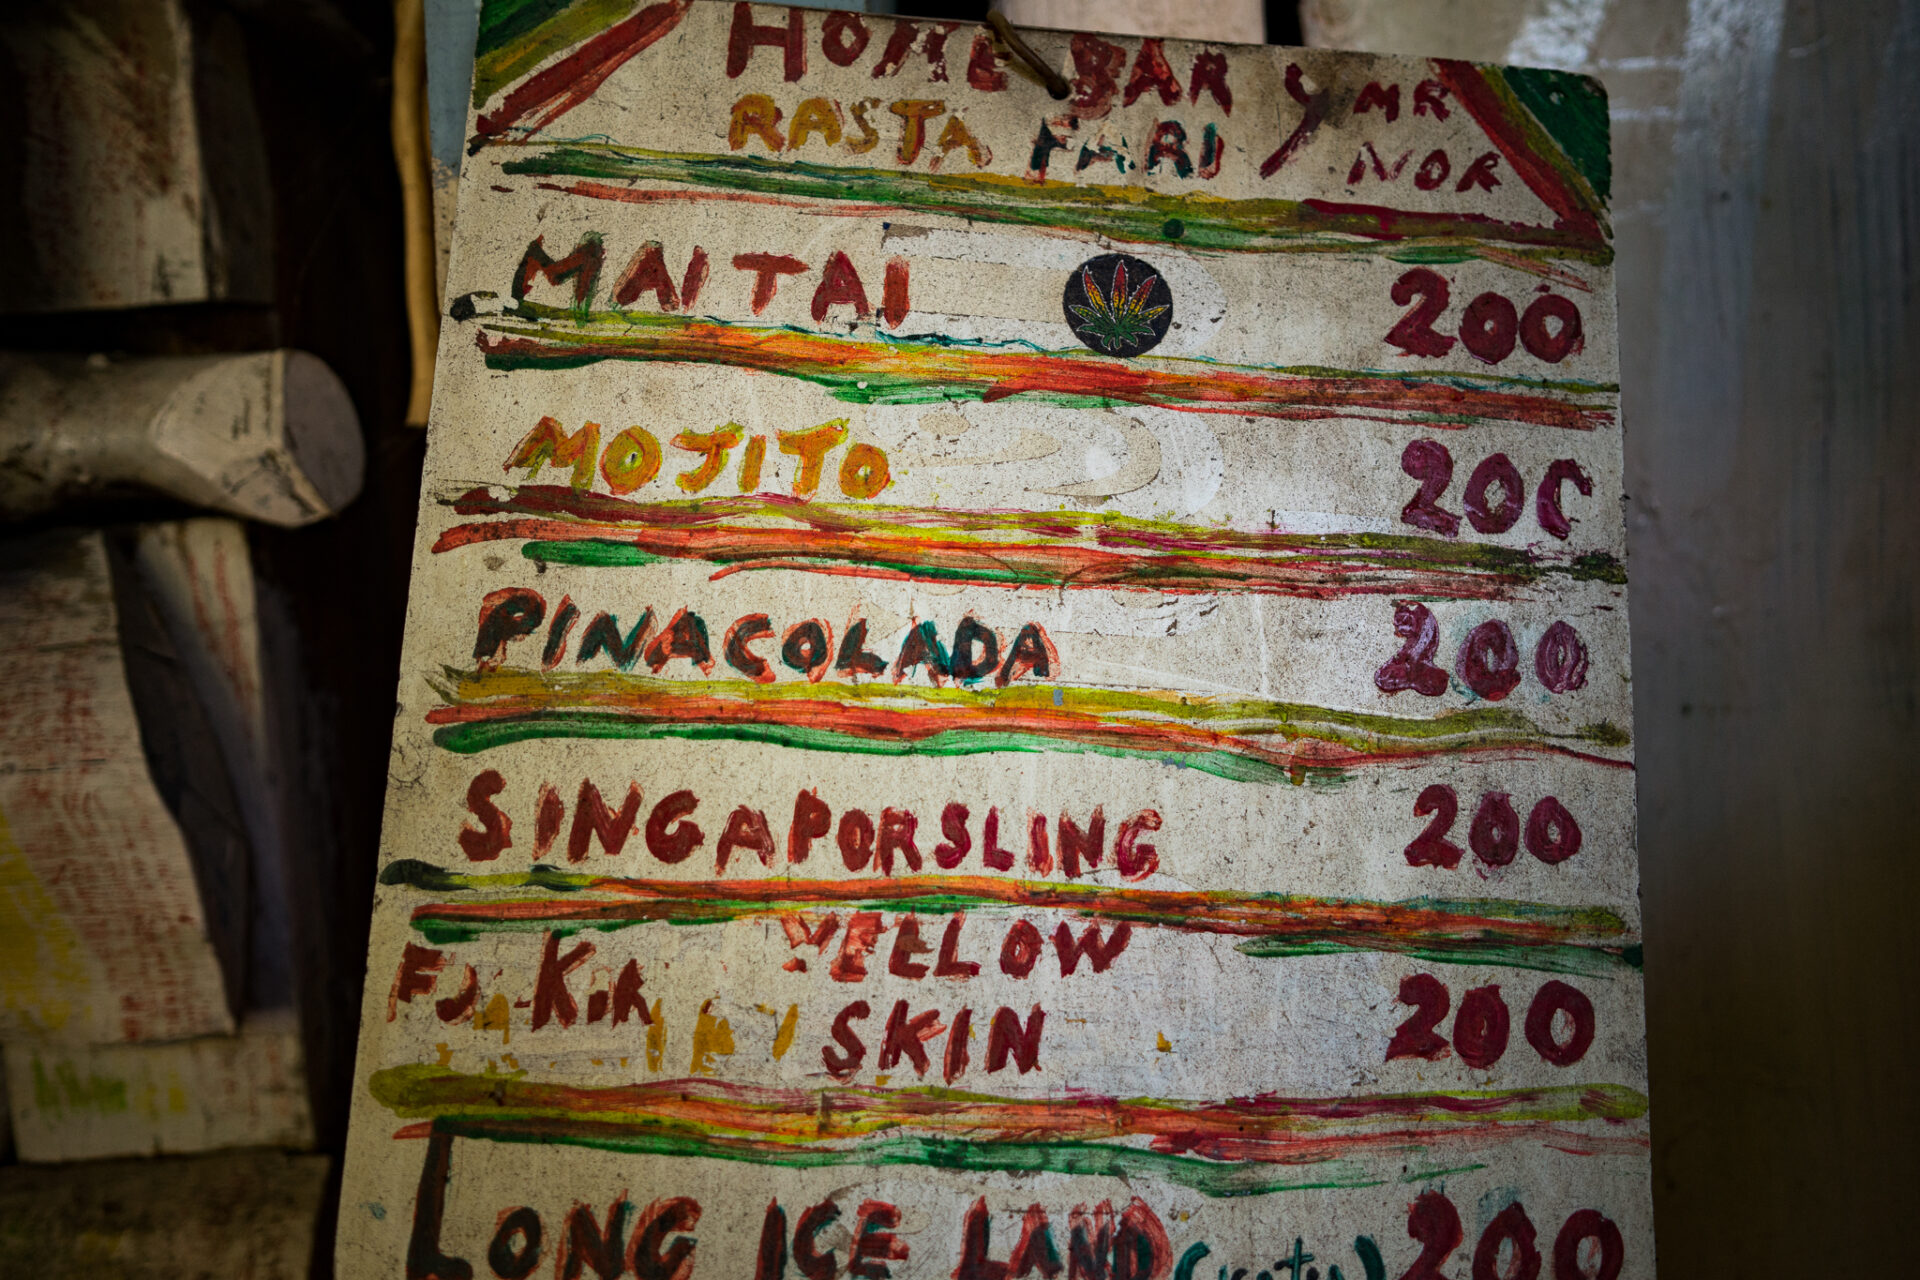 HOME BAR Y MR
RASTA FARI NOR
MAI TAI 200
MOJITO 200
PINACOLADA 200
SINGAPORSLING 200
YELLOW
SKIN 200
LONG ICE LAND 200